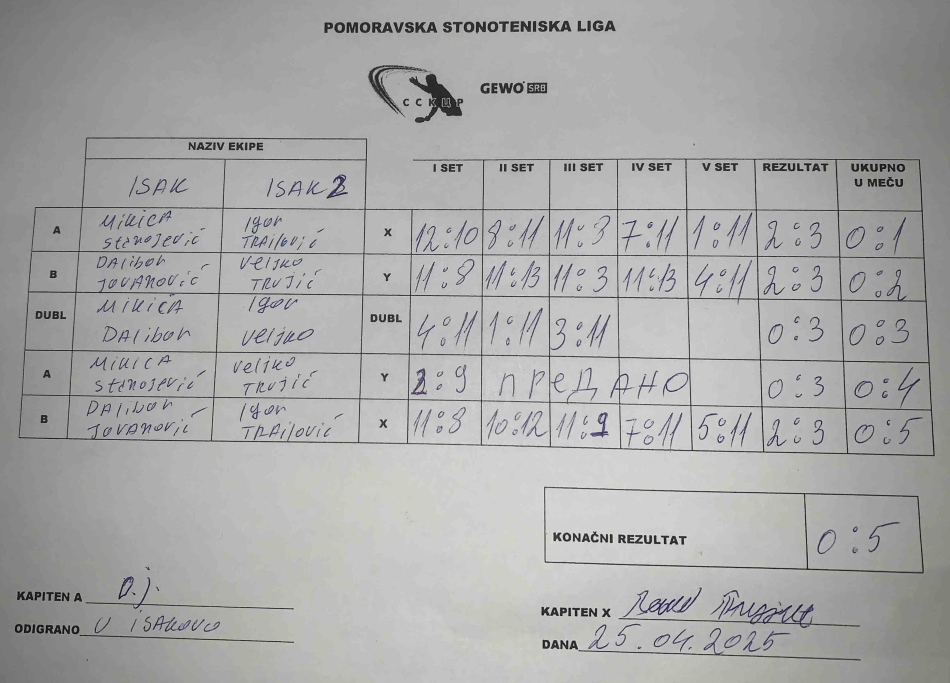 POMORAVSKA STONOTENISKA LIGA
ССКПР GEWO SRB
NAZIV EKIPE
I SET II SET III SET IV SET V SET REZULTAT UKUPNO U MEČU
ISAK ISAK 2
A Mikica Stanojević Igor TRAilović X 12:10 8:11 11:3 7:11 1:11 2:3 0:1
B DAlibor JOVANOVIĆ Veljko TRUJIĆ Y 11:8 11:13 11:3 11:13 4:11 2:3 0:2
DUBL MIKICA DAlibor Igor Veljko DUBL 4:11 1:11 3:11 0:3 0:3
A MIKICA Stanojević Veljko TRUJIĆ Y 2:9 предАНО 0:3 0:4
B DAlibor JOVANOVIĆ Igor TRAilović X 11:8 10:12 11:9 7:11 5:11 2:3 0:5
KONAČNI REZULTAT 0:5
KAPITEN A D.j.
ODIGRANO U ISAKOVO
KAPITEN X
DANA 25.04.2025